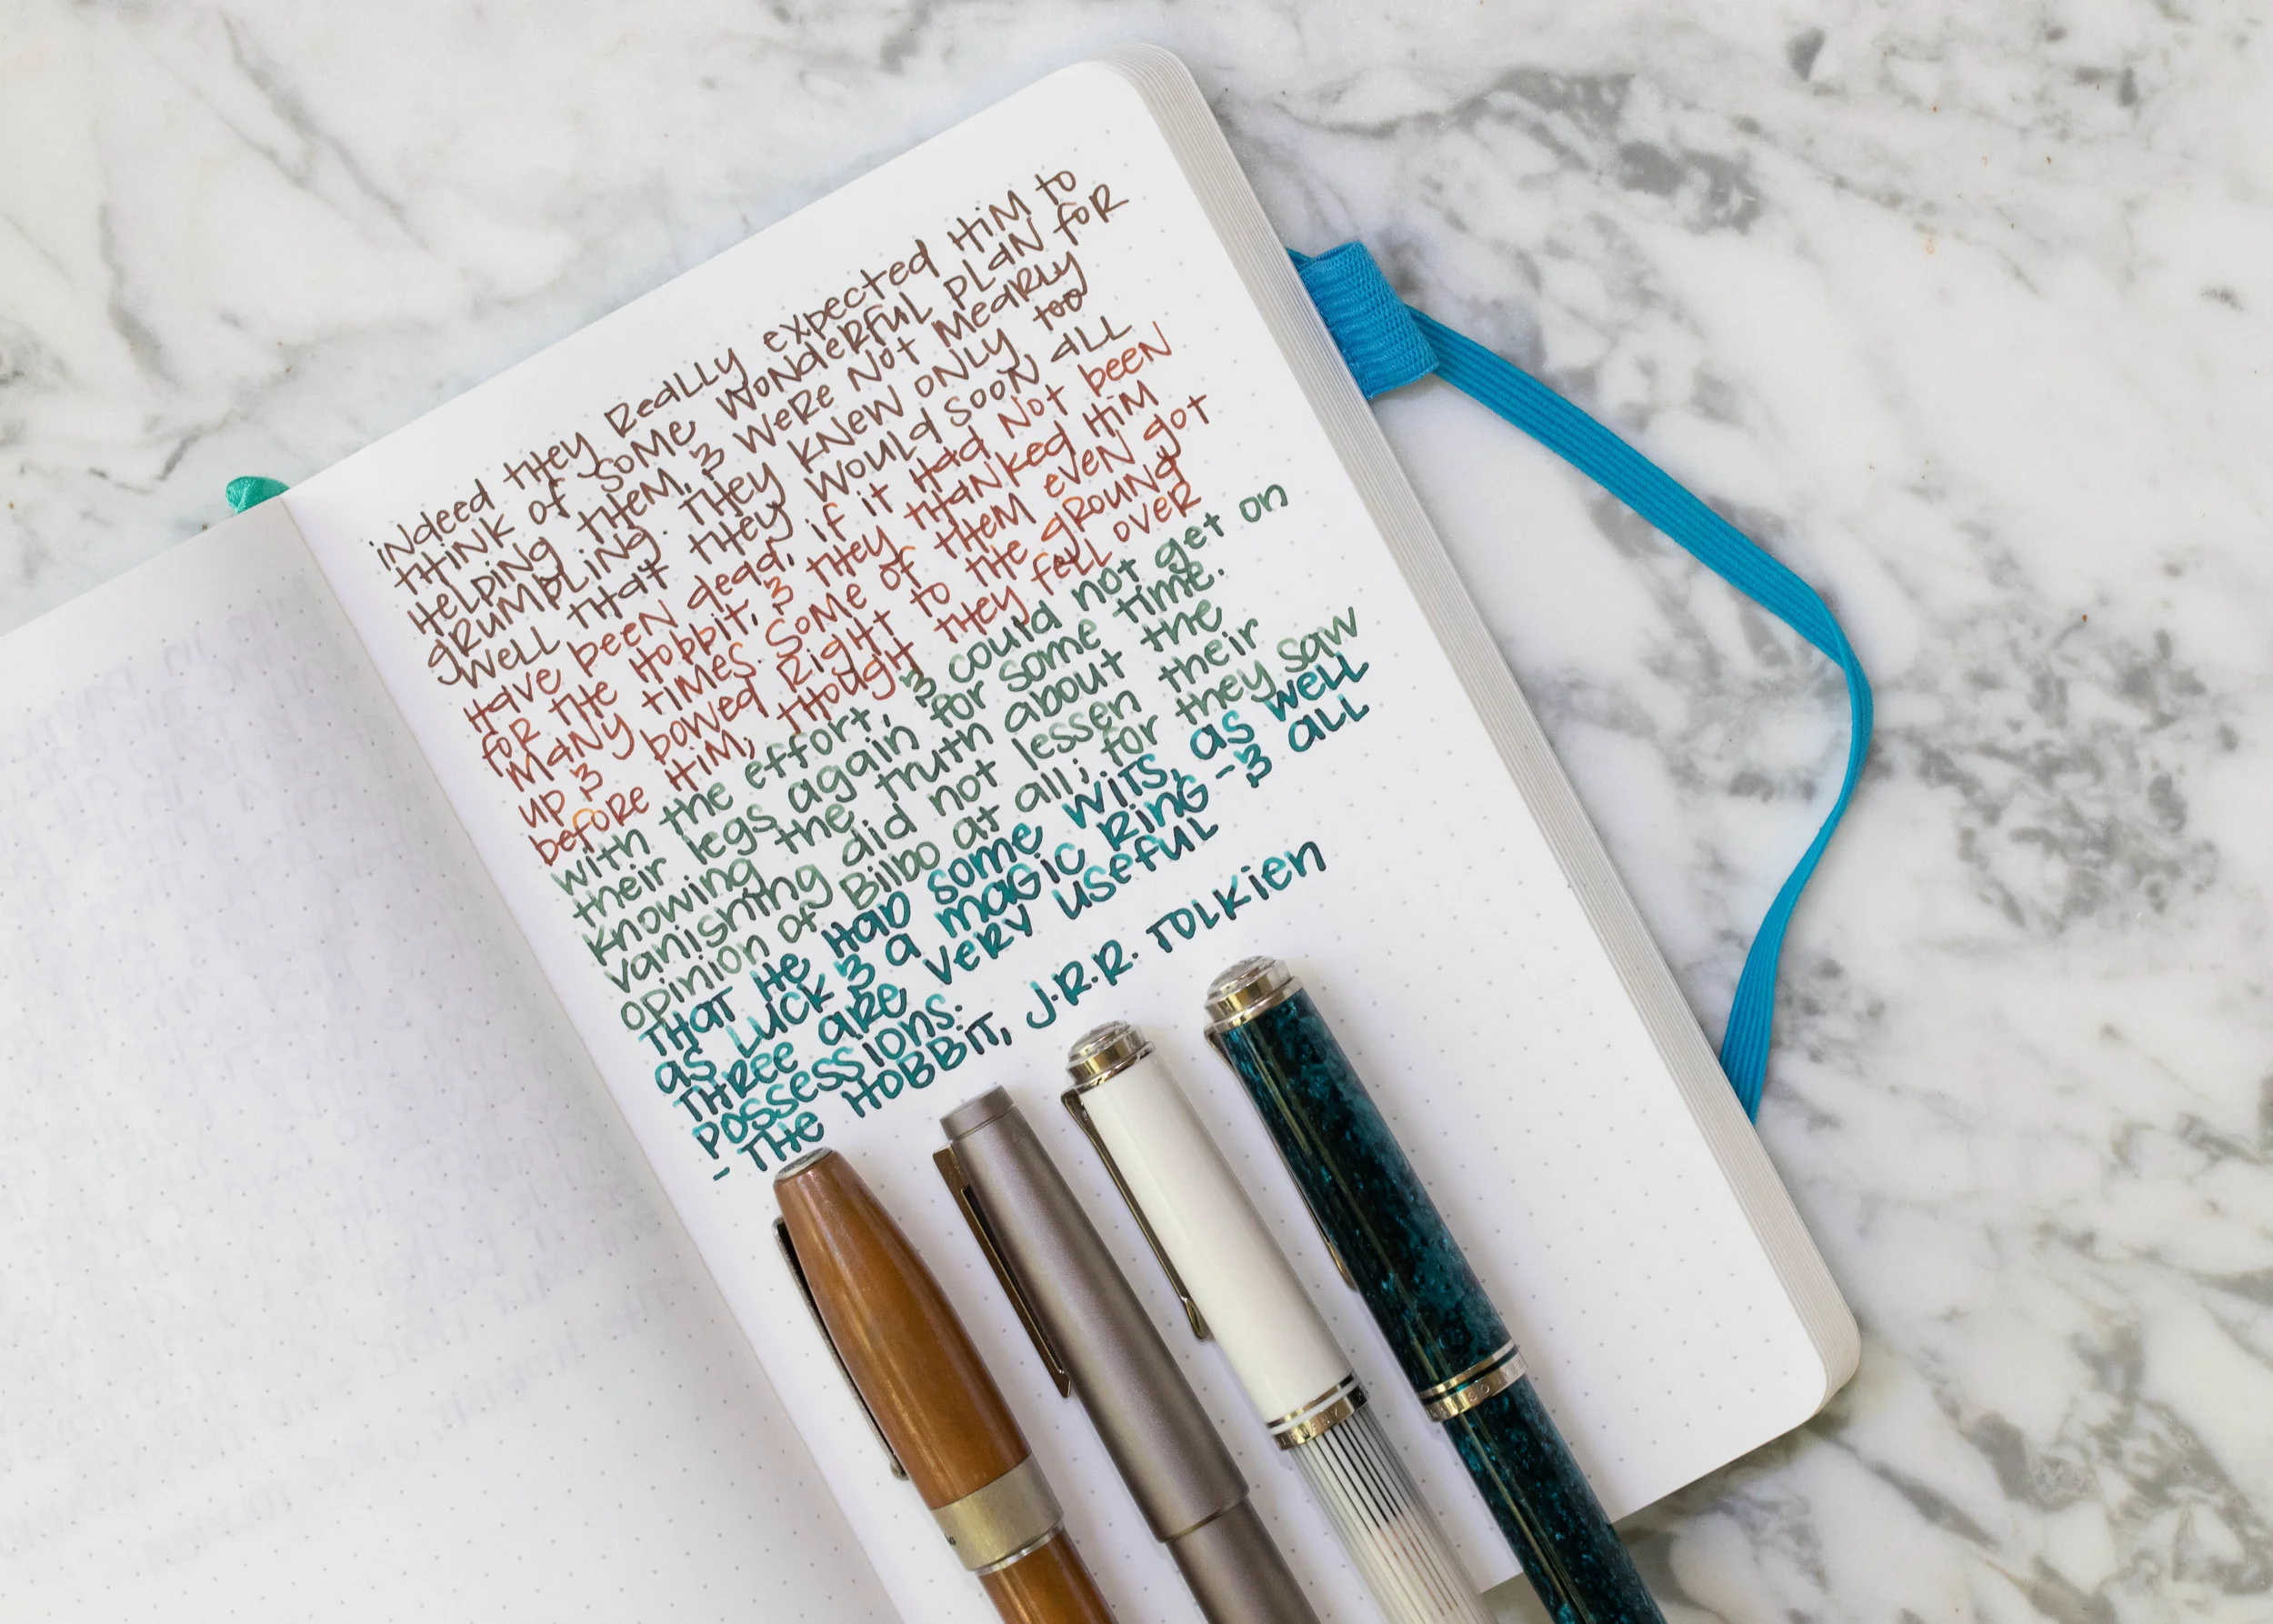 indeed they really expected him to
think of some wonderful plan for
helping them, & were not mearly
grumbling. They knew only too
well that they would soon, all
have been dead, if it had not been
for the hobbit; & they thanked him
many times. Some of them even got
up & bowed right to the ground
before him, though they fell over
with the effort, & could not get on
their legs again for some time.
Knowing the truth about the
vanishing did not lessen their
opinion of Bilbo at all; for they saw
that he had some wits, as well
as luck & a magic ring - & all
three are very useful
possessions.
- The Hobbit, J.R.R. Tolkien